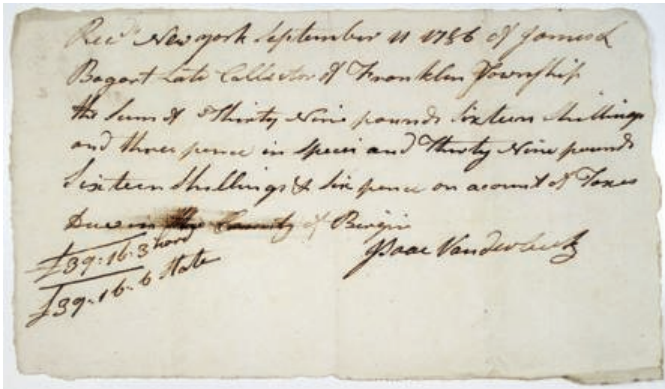 Recd New york September 11 1786 of James L
Bogart Late Collector of Franklin Township
the Sum of Thirty Nine pounds Sixteen Shillings
and three pence in Specie and Thirty Nine pounds
Sixteen Shillings & Six pence on acount of Taxes
Due in the County of Bergin
£39-16-3 hard
£39-16-6 State
Isaac Vanderbeek